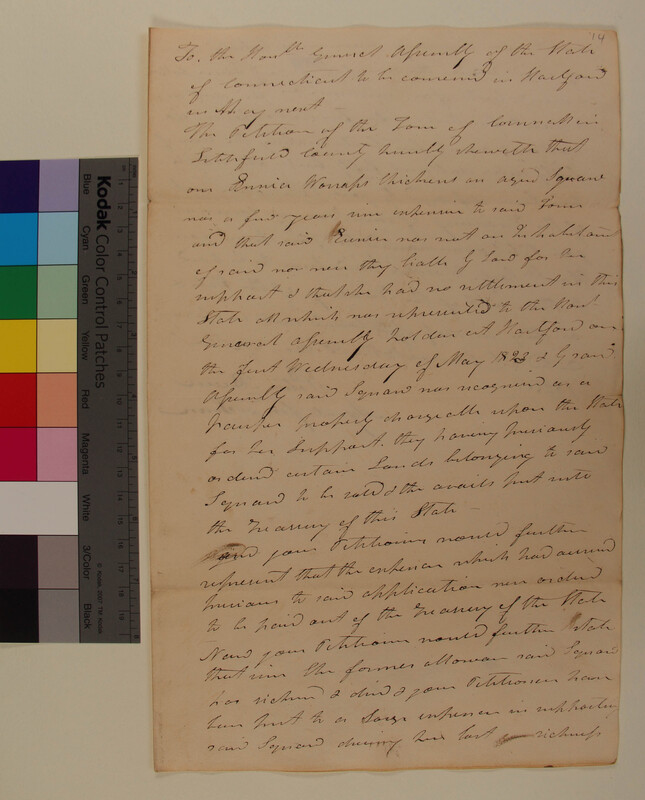 14
To, the Hon.ble General Assembly of the State
of Connecticut to be convened in Hartford
in May next
The Petition of the Town of Cornwall in
Litchfield County humbly sheweth that
one Eunice Chickens an aged Squaw
was a few years since expensive to said Town
and that said Eunice was not an Inhabitant
of said nor were they liable by Law for her
support & that she had no settlement in this
State all which was represented to the Hon.l
General Assembly holden at Hartford on
the first Wednesday of May 1823 & by said
Assembly said Squaw was recognised as a
Pauper properly chargeable upon the State
for her Support. they having previously
ordered certain Lands belonging to said
Squaw to be sold & the avails put into
the Treasury of this State
And your Petitioners would further
represent that the expenses which had accrued
previous to said application were ordered
to be paid out of the Treasury of the State
Now your Petitioners would further state
that since the former allowance said Squaw
has sickened & died & your Petitioners have
been put to a Large expense in supporting
said Squaw during her last sickness
Kodak Color Control Patches
Blue
Cyan
Green
Yellow
Red
Magenta
White
3/Color
Black